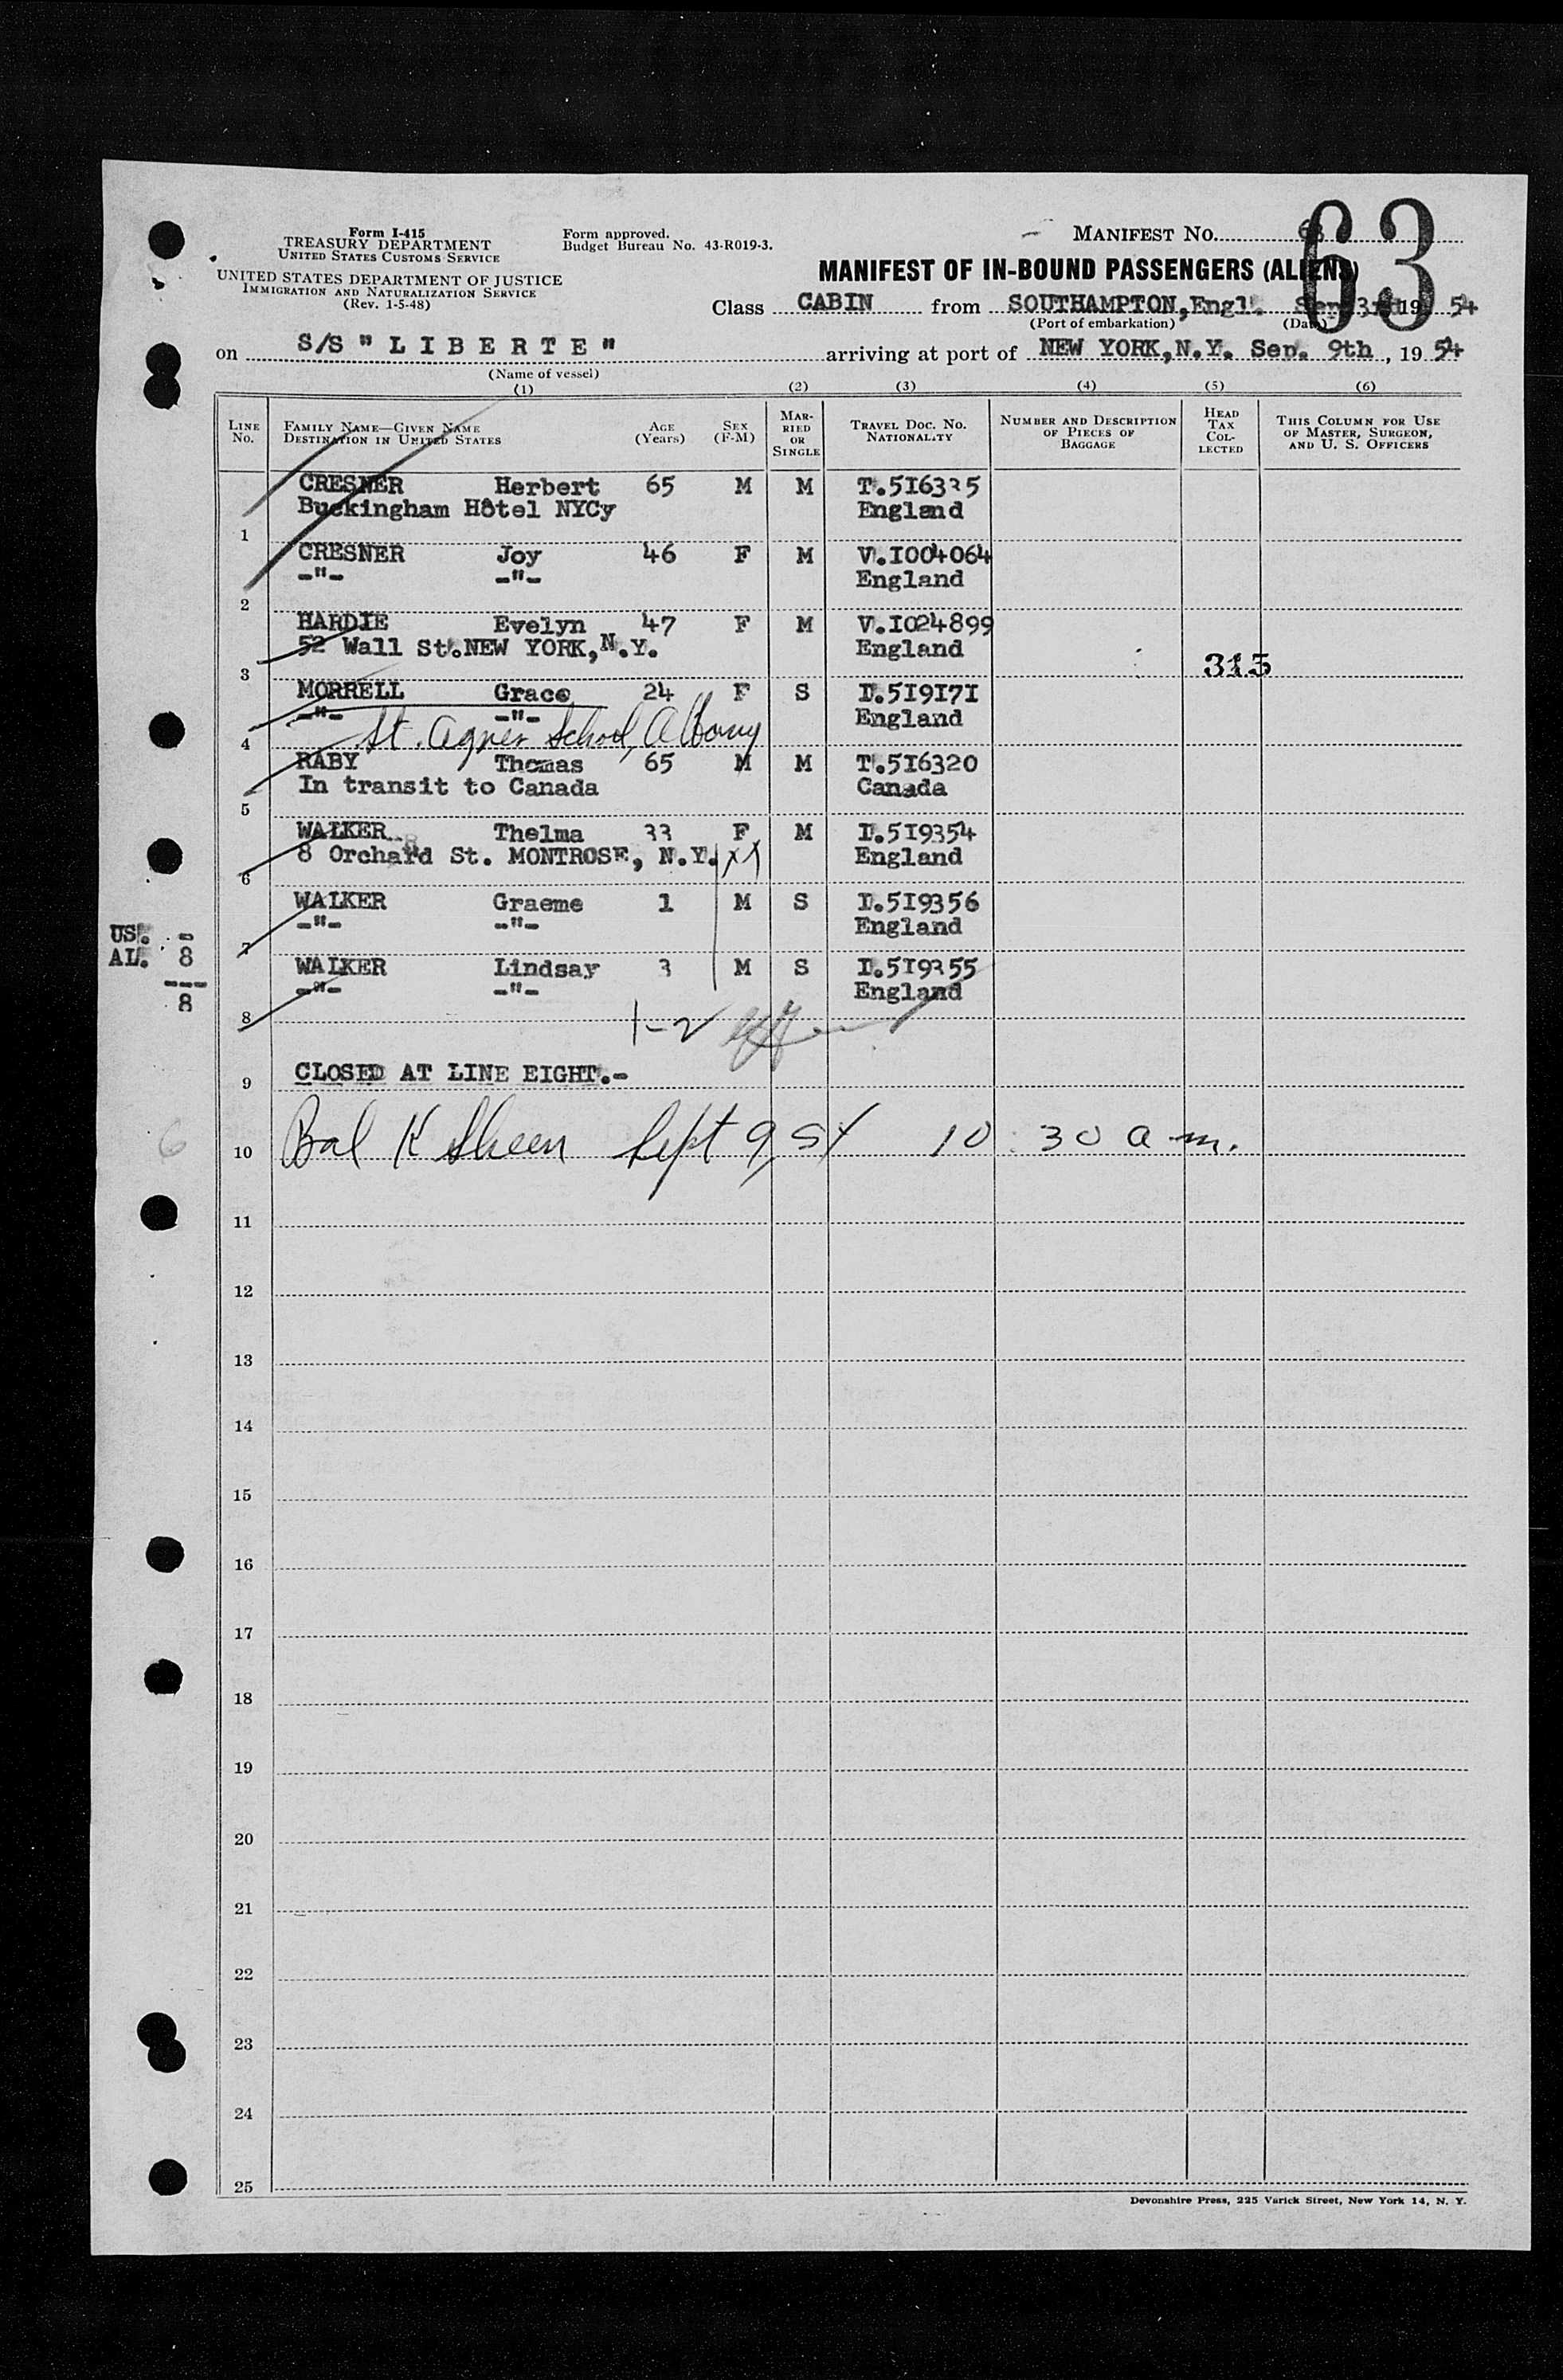 Form I-415
TREASURY DEPARTMENT
UNITED STATES CUSTOMS SERVICE
UNITED STATES DEPARTMENT OF JUSTICE
IMMIGRATION AND NATURALIZATION SERVICE
(Rev. 1-5-48)
Form approved.
Budget Bureau No. 43-R019-3.
MANIFEST NO. 63
63
MANIFEST OF IN-BOUND PASSENGERS (ALIENS)
Class CABIN from SOUTHAMPTON, Engl. Sep. 3rd 19 54
(Port of embarkation) (Date)
on S/S " L I B E R T E " arriving at port of NEW YORK, N.Y. Sep. 9th, 19 54
(Name of vessel)
(1) (2) (3) (4) (5) (6)
LINE No. FAMILY NAME—GIVEN NAME DESTINATION IN UNITED STATES AGE (Years) SEX (F-M) MARRIED OR SINGLE TRAVEL DOC. NO. NATIONALITY NUMBER AND DESCRIPTION OF PIECES OF BAGGAGE HEAD TAX COLLECTED THIS COLUMN FOR USE OF MASTER, SURGEON, AND U. S. OFFICERS
CRESNER Herbert 65 M M T.516335
Buckingham Hôtel NYCy England
1
CRESNER Joy 46 F M V.I004064
-"- -"- England
2
HARDIE Evelyn 47 F M V.I024899
52 Wall St. NEW YORK, N.Y. England
3 313
MORRELL Grace 24 F S I.519171
-"- -"- England
4 St. Agnes School, Albany
RABY Thomas 65 M M T.516320
In transit to Canada Canada
5
WALKER Thelma 33 F M I.519354
8 Orchard St. MONTROSE, N.Y. XX England
6
WALKER Graeme 1 M S I.519356
-"- -"- England
7
US. -
AL. 8
---
8
WALKER Lindsay 3 M S I.519355
-"- -"- England
8
1-2
9 CLOSED AT LINE EIGHT.-
6
10 Bal K Sheen Sept 9, 54 10:30 a.m.
11
12
13
14
15
16
17
18
19
20
21
22
23
24
25
Devonshire Press, 225 Varick Street, New York 14, N. Y.